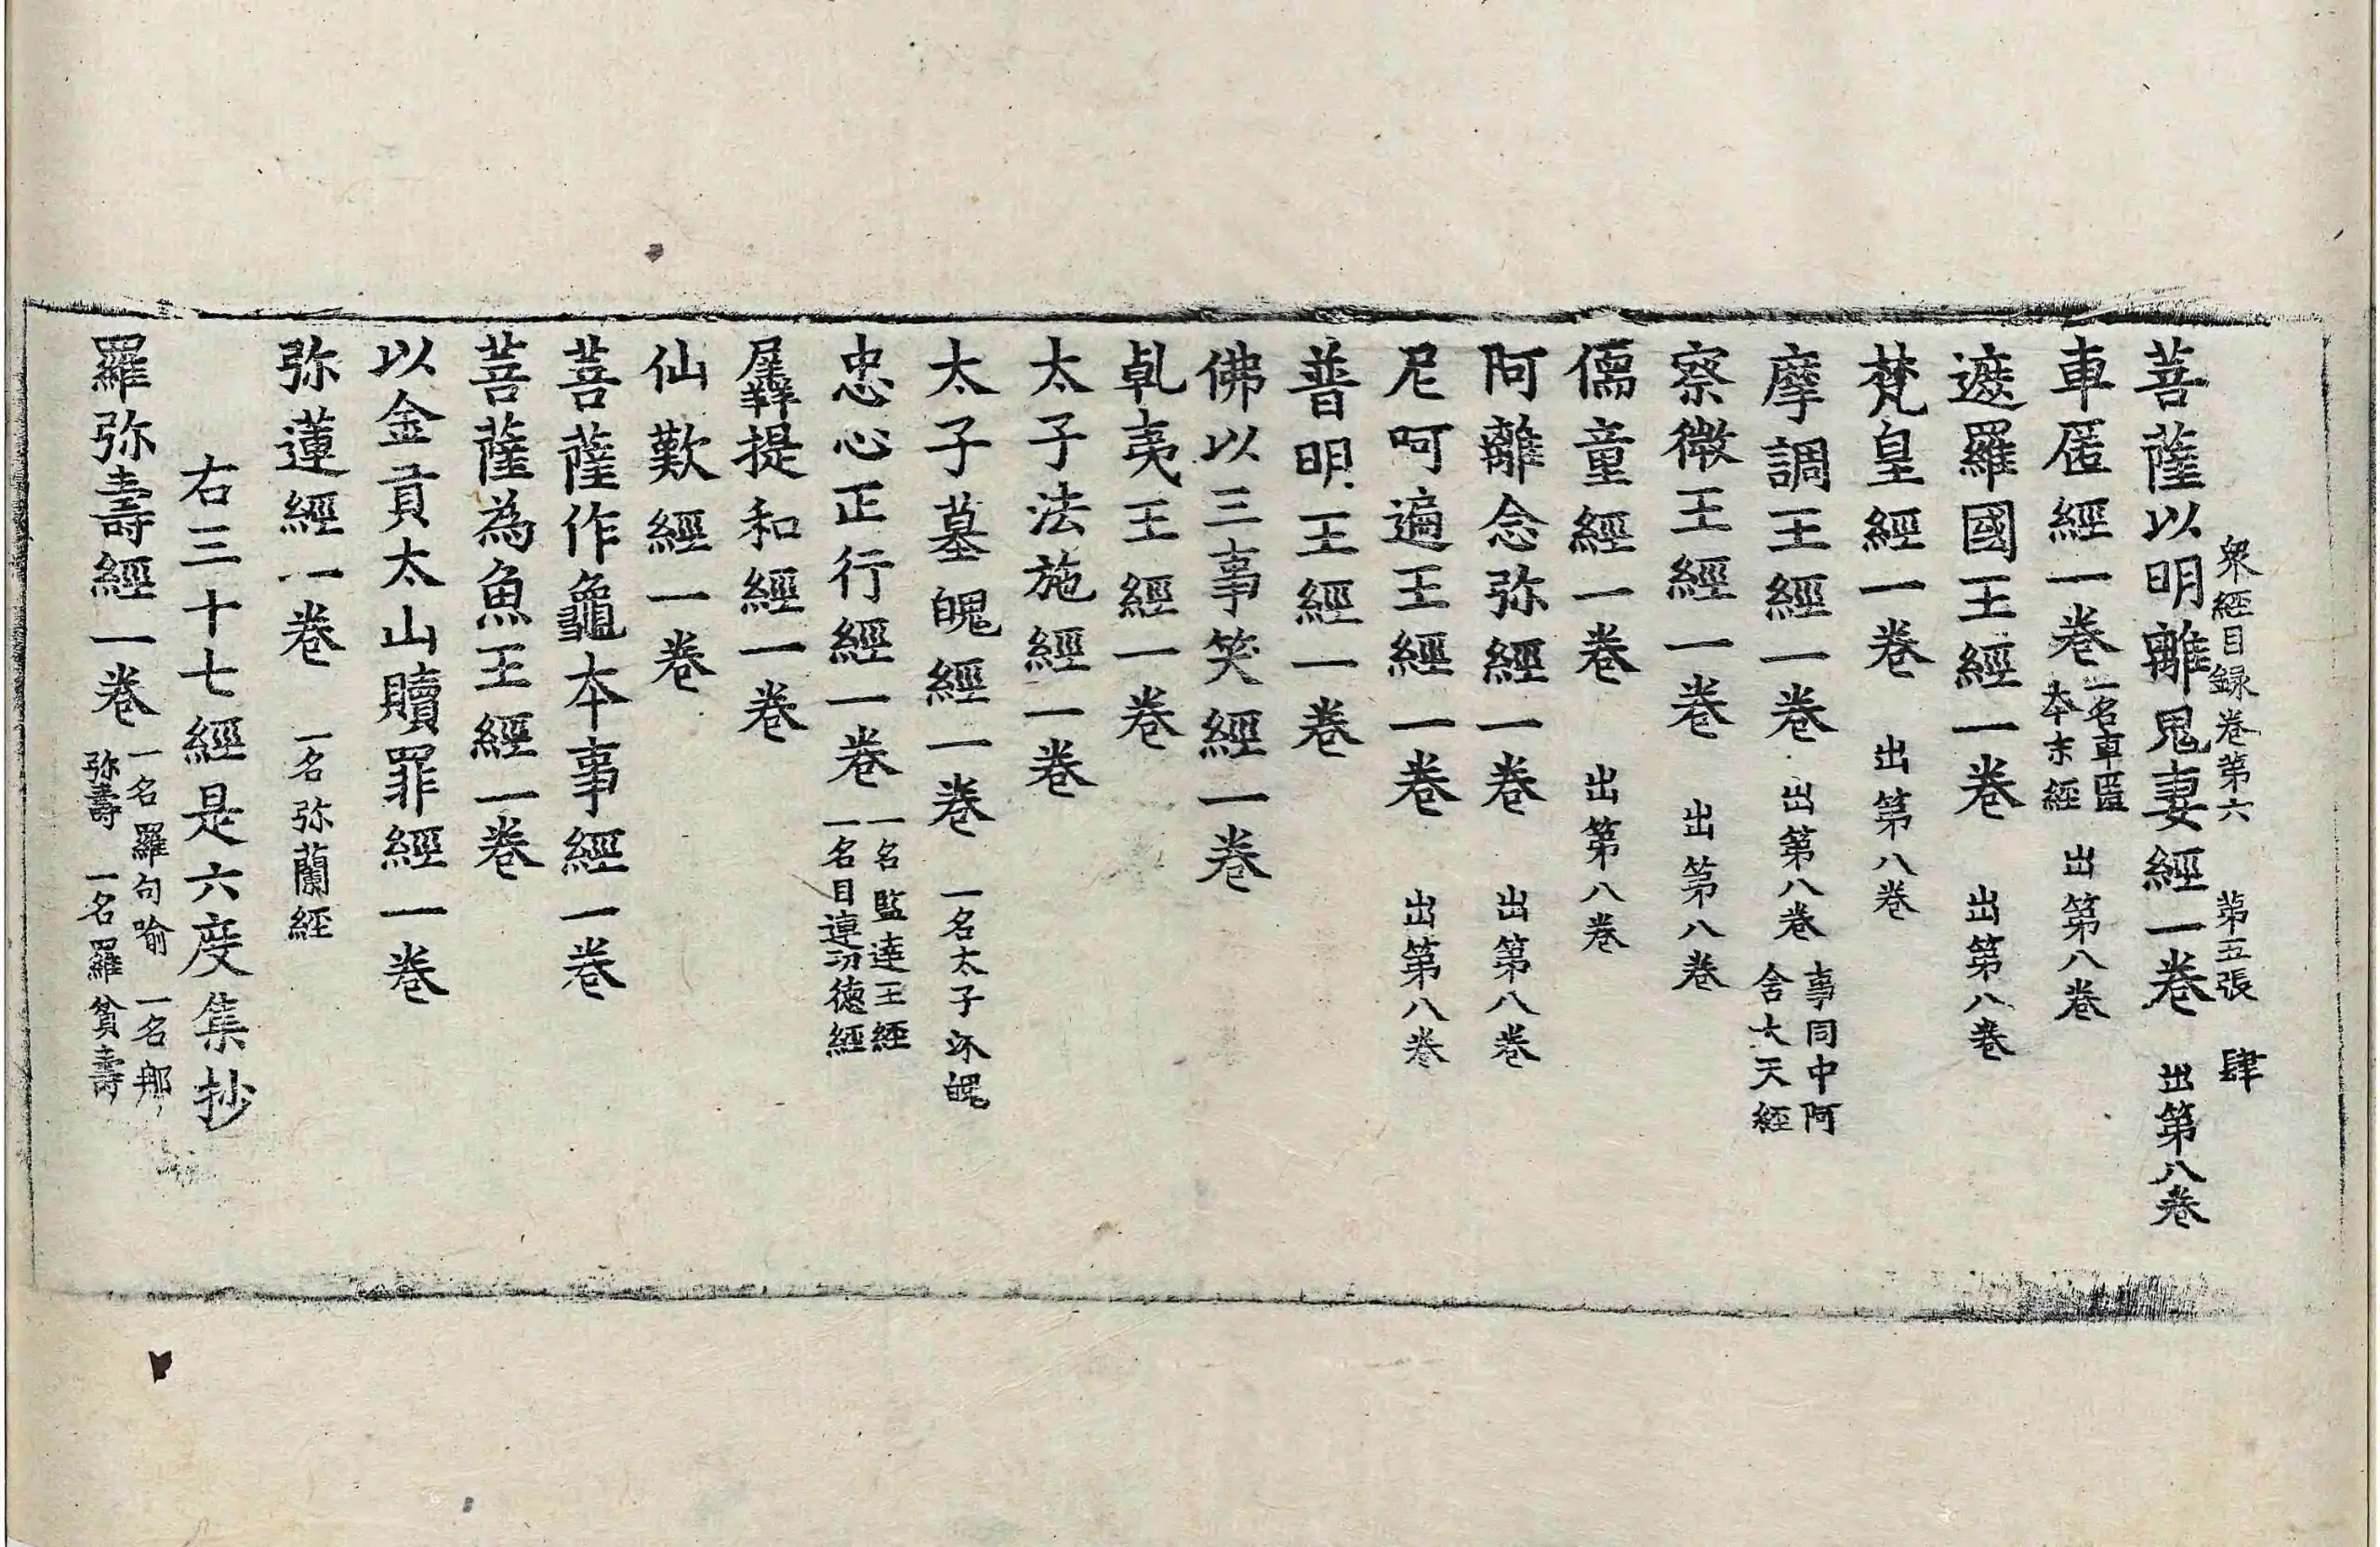 衆經目録卷第六　第五張　肆
菩薩以明離鬼妻經一卷　出第八卷
車匿經一卷　一名車匿本末經　出第八卷
遮羅國王經一卷　出第八卷
梵皇經一卷　出第八卷
摩調王經一卷　出第八卷　事同中阿含大天經
察微王經一卷　出第八卷
儒童經一卷　出第八卷
阿離念弥經一卷　出第八卷
尼呵遍王經一卷　出第八卷
普明王經一卷
佛以三事笑經一卷
乹夷王經一卷
太子法施經一卷
太子墓魄經一卷　一名太子沐魄
忠心正行經一卷　一名監達王經　一名目連功德經
羼提和經一卷
仙歎經一卷
菩薩作龜本事經一卷
菩薩為魚王經一卷
以金貢太山贖罪經一卷
弥蓮經一卷　一名弥蘭經
右三十七經是六度集抄
羅弥壽經一卷　一名羅句喻　一名那弥壽　一名羅貧壽